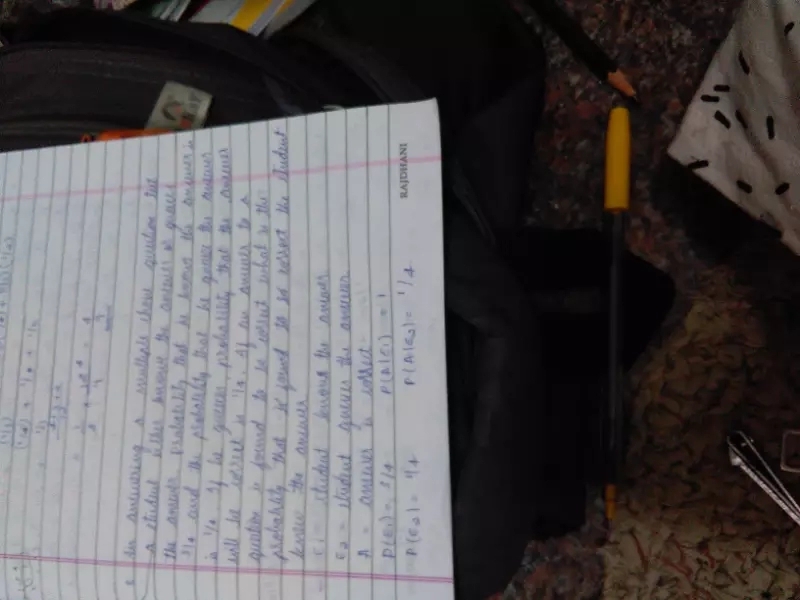 In answering a multiple choice question the
a student either knows the answer or guess
the answer probability that he knows the answer is
3/4 and the probability that he guess the answer
is 1/4. If he guesses probability that the answer
will be correct is 1/4. If an answer to a
question is found to be correct what is the
probability that is found to be correct the student
knows the answer
E1 = student knows the answer
E2 = student guesses the answer
A = answer is correct
P(E1) = 3/4 P(A|E1) = 1
P(E2) = 1/4 P(A|E2) = 1/4
RAJDHANI